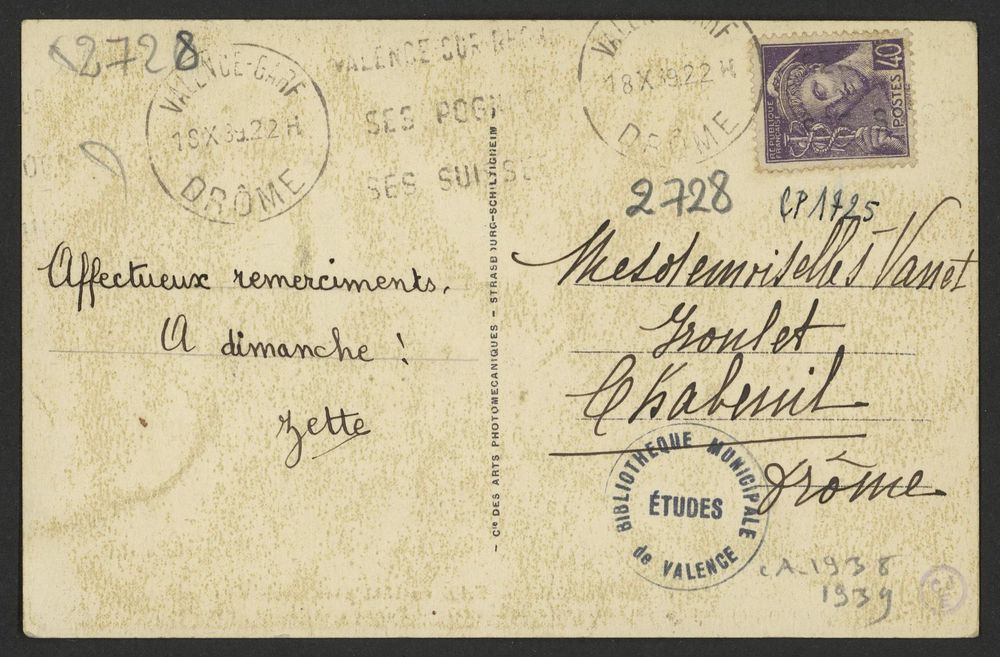 2728
VALENCE-GARE
18 X 39.22 H
DRÔME
VALENCE SUR RHÔN
SES POGN
SES SUISSE
VALENCE-GARE
18 X 39.22 H
DRÔME
RÉPUBLIQUE FRANÇAISE
POSTES 40
2728
CP 1725
Affectueux remerciments.
A dimanche !
Zette
– Cie DES ARTS PHOTOMECANIQUES – STRASBOURG-SCHILTIGHEIM
Mesdemoiselles Vanet
Chabeuil
Drôme
BIBLIOTHEQUE MUNICIPALE
ÉTUDES
de VALENCE
cA.1938
1939